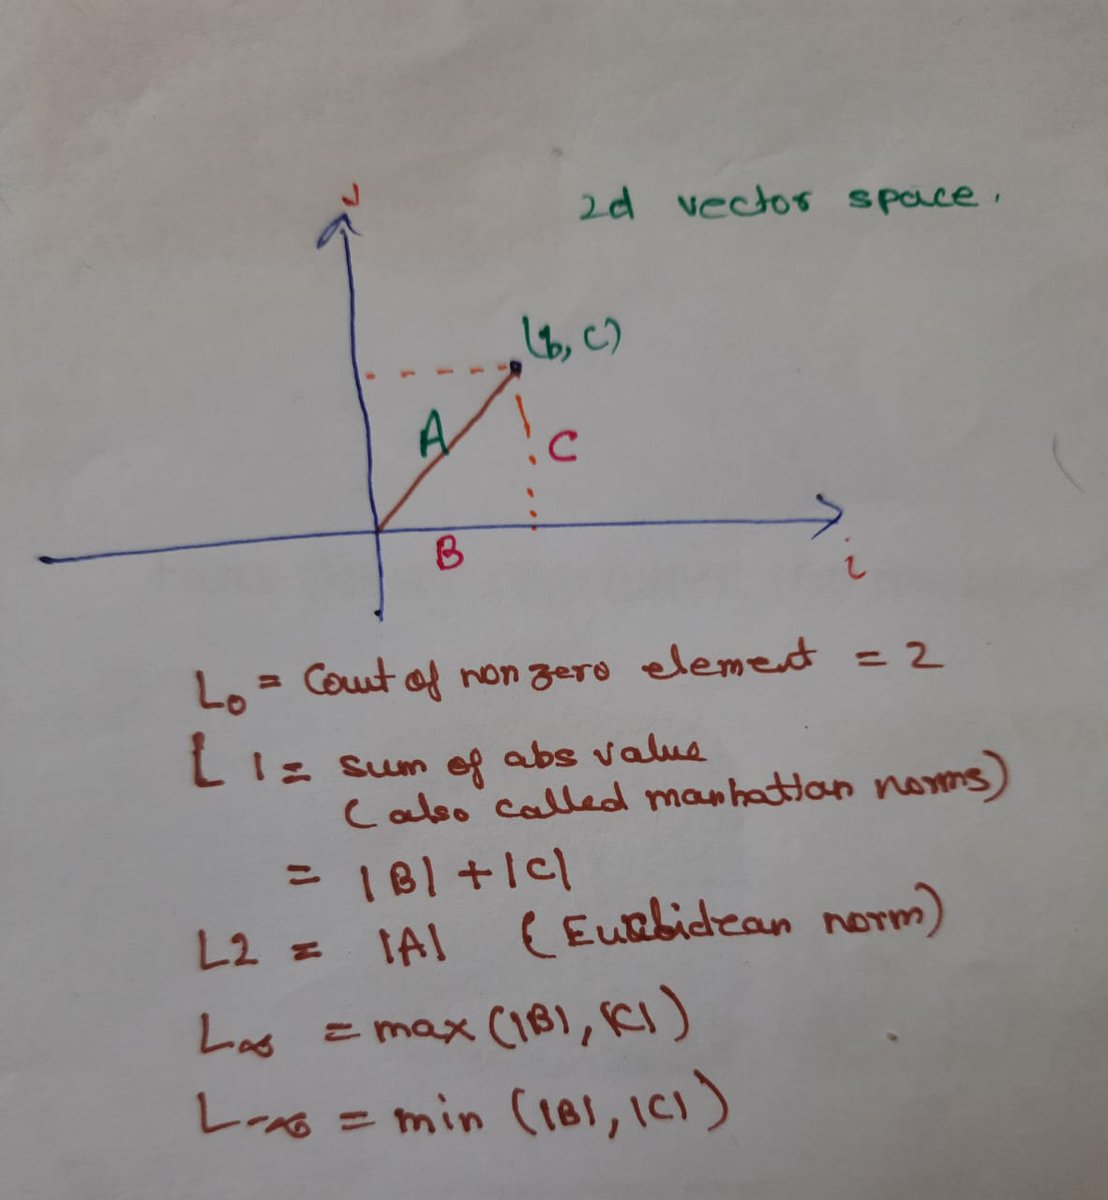 J
2d vector space.
(b, c)
A
C
B
i
L0 = Count of non zero element = 2
L1 = sum of abs value
(also called manhattan norms)
= |B| + |C|
L2 = |A| (Euclidean norm)
L∞ = max (|B|, |C|)
L-∞ = min (|B|, |C|)